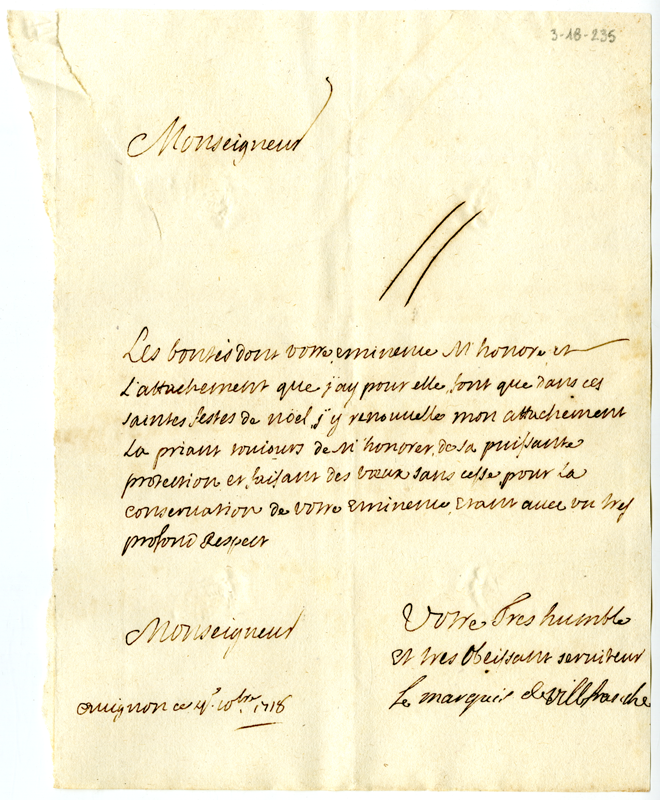 3-18-235
Monseigneur
Les bontés dont votre eminence M'honore et
L'attachement que j'ay pour elle, font que dans ces
saintes festes de noel, j'y renouvelle mon attachement
La priant toujours de M'honorer, de sa puissante
protection et faisant des vœux sans cesse pour La
conservation de votre eminence, Etant avec un tres
profond Respect
Monseigneur
Votre Tres humble
Et tres Obeissant serviteur
Le marquis de villefranche
avignon ce 10bre 1718